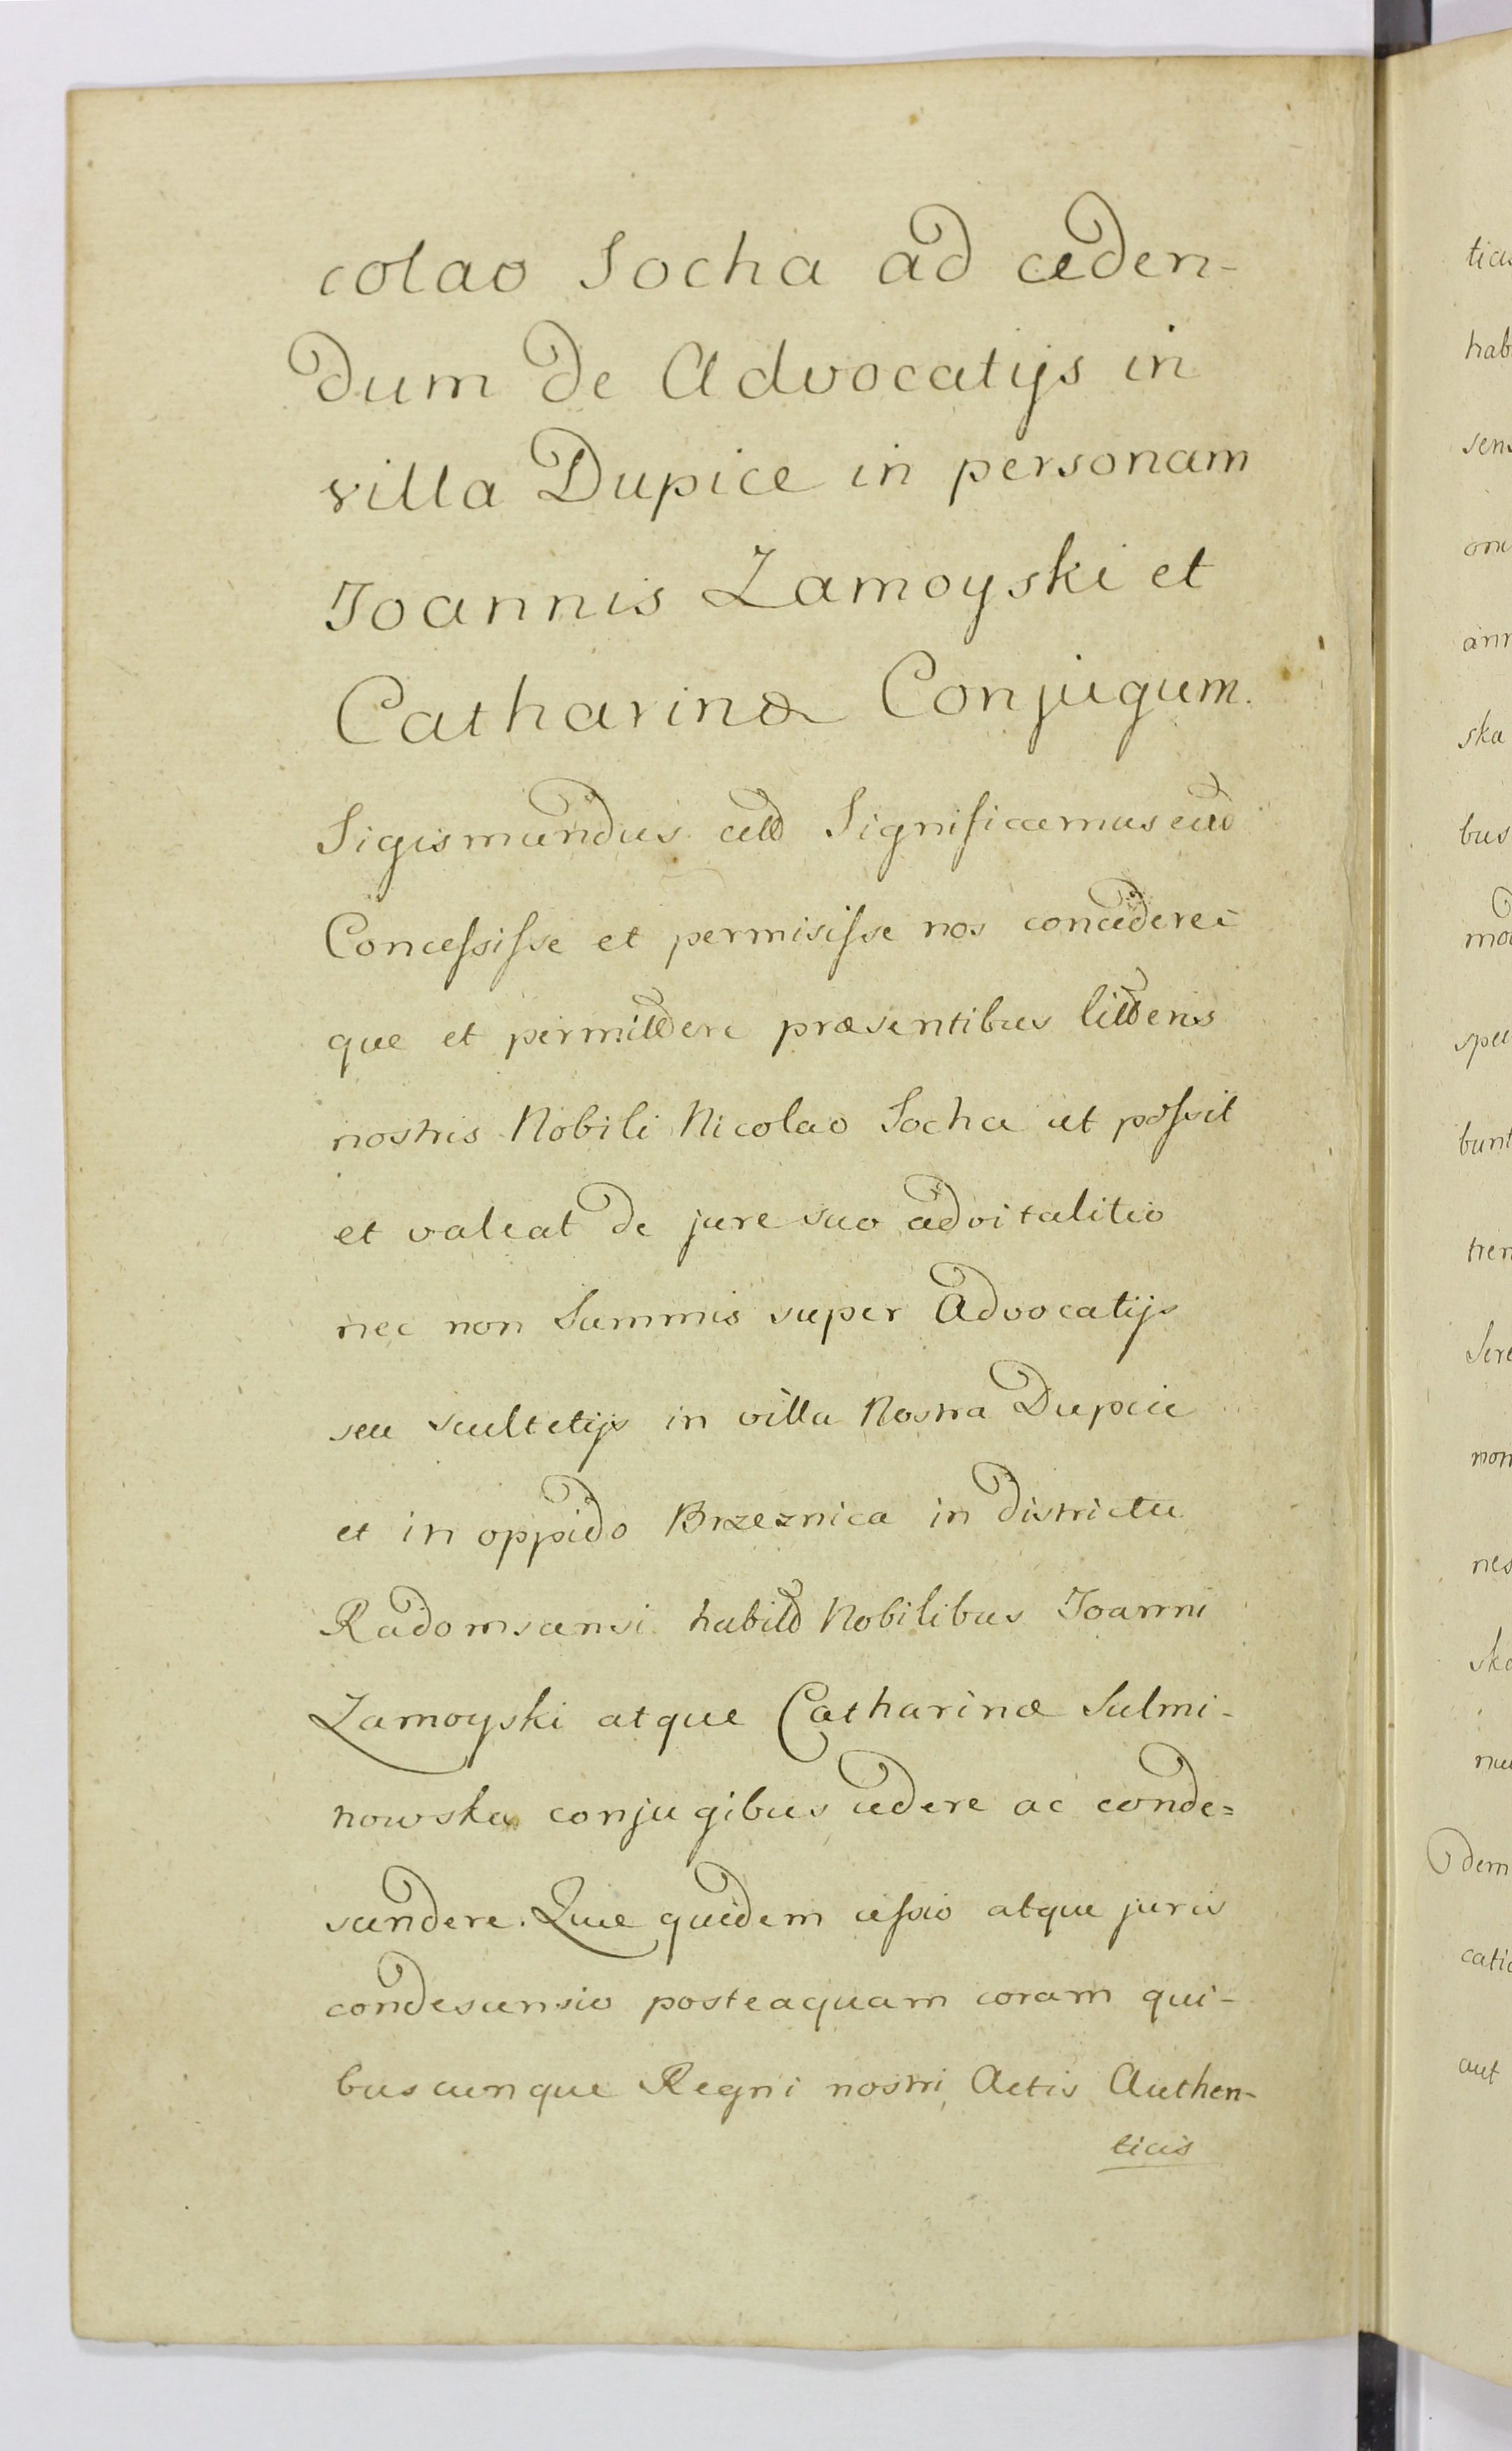 colao Socha ad ceden-
dum de Advocatijs in
villa Dupice in personam
Joannis Zamoyski et
Catharinæ Conjugum.
Sigismundus Significamus
Concessisse et permisisse nos concedere
que et permittere præsentibus litteris
nostris Nobili Nicolao Socha ut possit
et valeat de jure suo advitalitio
nec non Summis super Advocatijs
seu scultetijs in villa Nostra Dupice
et in oppido Brzeznica in districtu
Radomscensi habitt Nobilibus Joanni
Zamoyski atque Catharinæ Sulmi-
nowska conjugibus cedere ac conde=
scendere. Quæ quidem cessio atque juris
condescensio posteaquam coram qui-
buscunque Regni nostri Actis Authen-
ticis